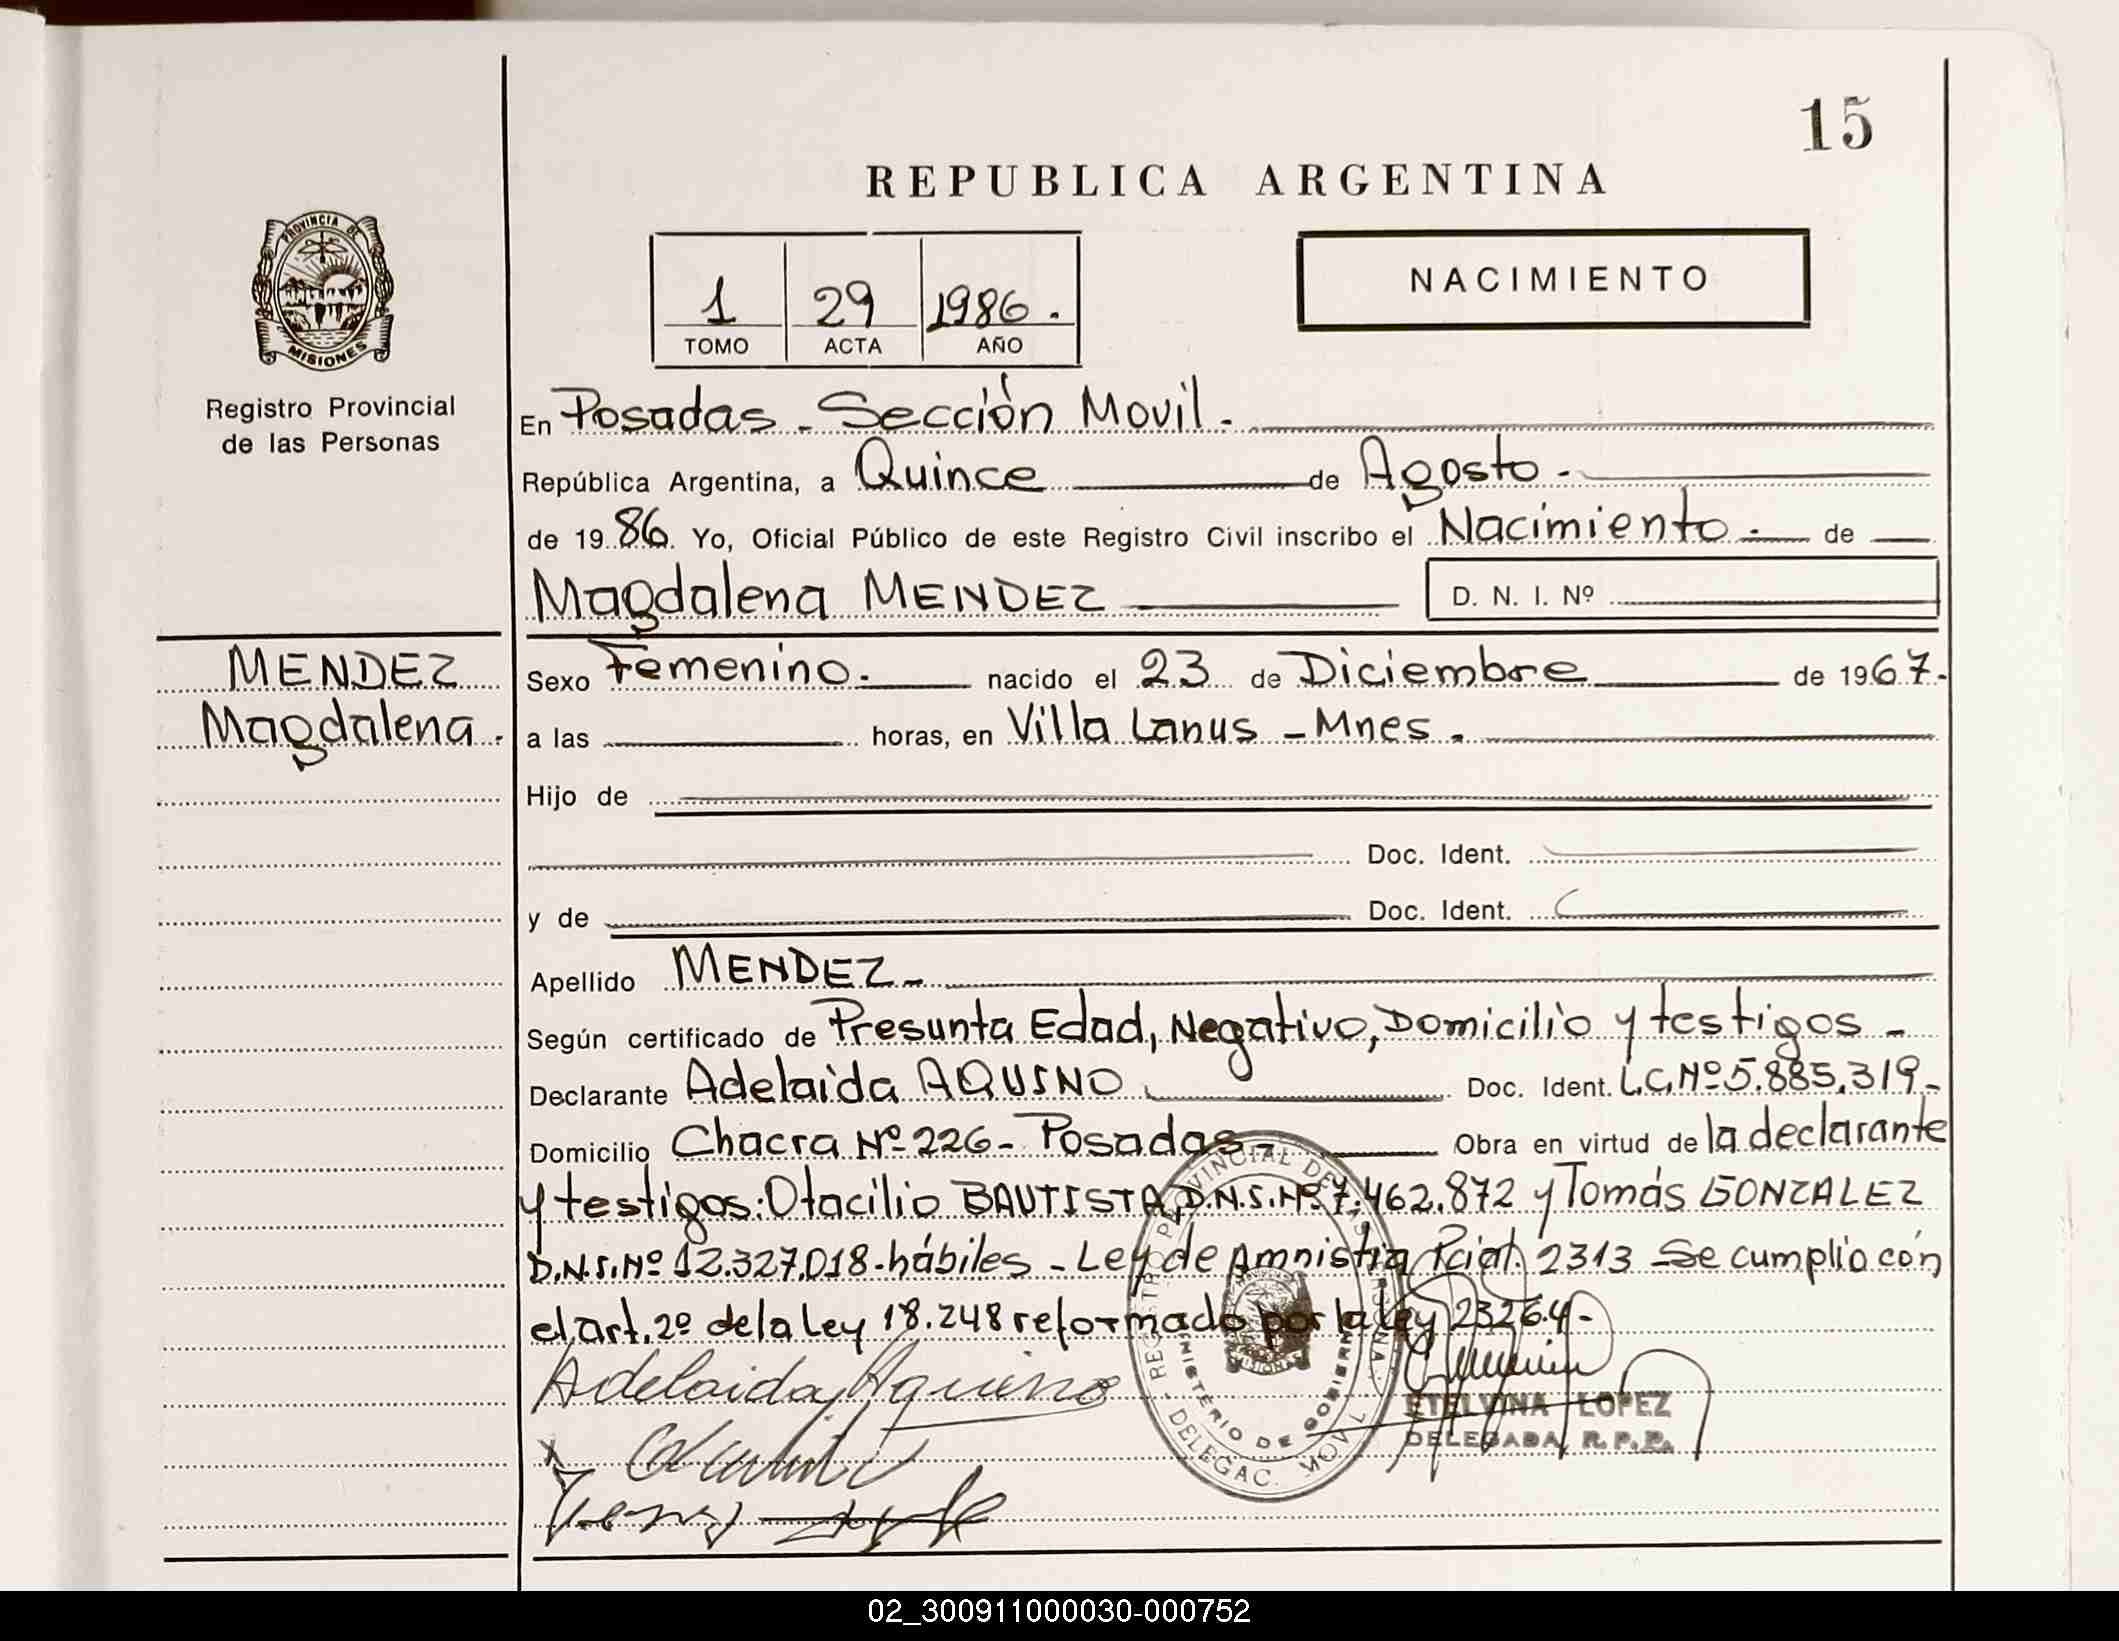 15
REPUBLICA ARGENTINA
PROVINCIA DE
MISIONES
Registro Provincial
de las Personas
1 29 1986.
TOMO ACTA AÑO
NACIMIENTO
En Posadas - Sección Movil.
República Argentina, a Quince de Agosto.
de 1986. Yo, Oficial Público de este Registro Civil inscribo el Nacimiento. de
Magdalena MENDEZ D. N. I. Nº
MENDEZ
Magdalena.
Sexo Femenino. nacido el 23 de Diciembre de 1967.
a las horas, en Villa Lanus - Mnes.
Hijo de
Doc. Ident.
y de Doc. Ident.
Apellido MENDEZ -
Según certificado de Presunta Edad, Negativo, Domicilio y testigos -
Declarante Adelaida AQUINO Doc. Ident. L.C.Nº 5.885.319.-
Domicilio Chacra Nº 226 - Posadas - Obra en virtud de la declarante
y testigos: Otacilio BAUTISTA, D.N.I. Nº 7.462.872 y Tomás GONZALEZ
D.N.I. Nº 12.327.018 - hábiles - Ley de Amnistia Pcial. 2313 - Se cumplio con
el art. 2º de la Ley 18.248 reformado por la ley 23264 -
Adelaida Aquino
ETELVINA LOPEZ
DELEGADA R.P.P.
REGISTRO PROVINCIAL DE LAS PERSONAS
MINISTERIO DE GOBIERNO
DELEGAC. MOVIL
MISIONES
02_300911000030-000752